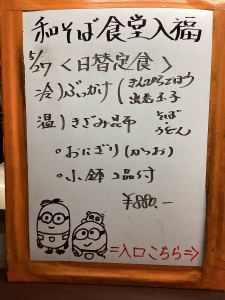 和そば食堂入福
5/27 〈日替定食〉
冷)ぶっかけ(きんぴらごぼう
温玉子
温)きざみ昆布 そば
うどん
・おにぎり(かつお)
・小鉢2品付
¥880.-
⇒入口こちら⇒